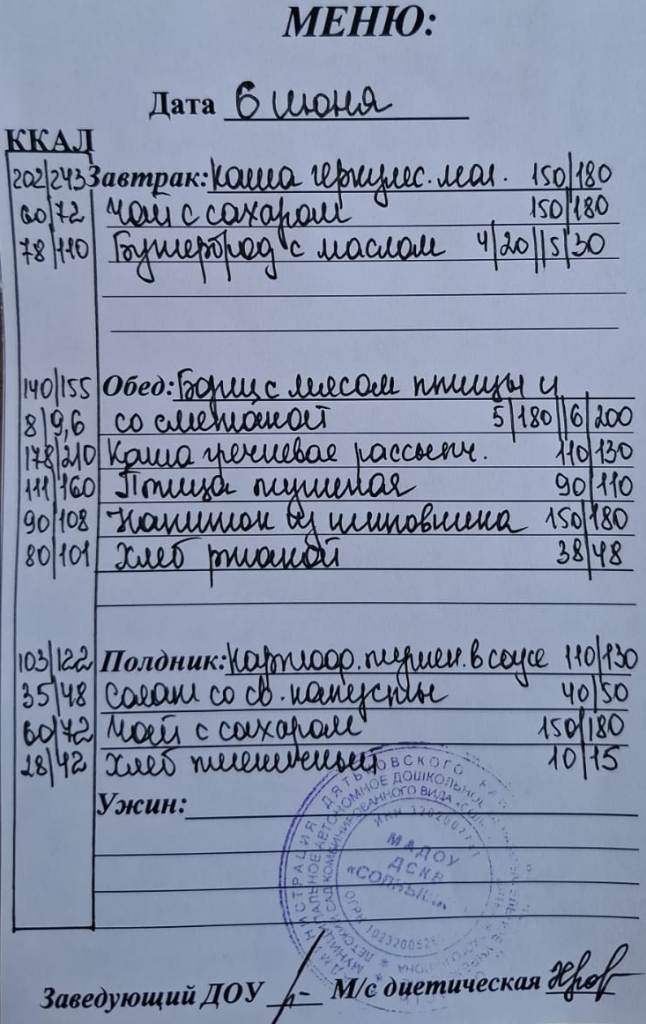 МЕНЮ:
Дата 6 июня
ККАЛ
202/243 Завтрак: Каша геркулес. мол. 150/180
60/72 Чай с сахаром 150/180
78/110 Бутерброд с маслом 4/20//5/30
140/155 Обед: Борщ с мясом птицы и
8/9,6 со сметаной 5/180//6/200
178/210 Каша гречневая рассыпч. 110/130
111/160 Птица тушеная 90/110
90/108 Напиток из шиповника 150/180
80/101 Хлеб ржаной 38/48
103/122 Полдник: Картоф. тушен. в соусе 110/130
35/48 Салат со св. капусты 40/50
60/72 Чай с сахаром 150/180
28/42 Хлеб пшеничный 10/15
Ужин:
МАДОУ
ДСКВ
Заведующий ДОУ М/с диетическая